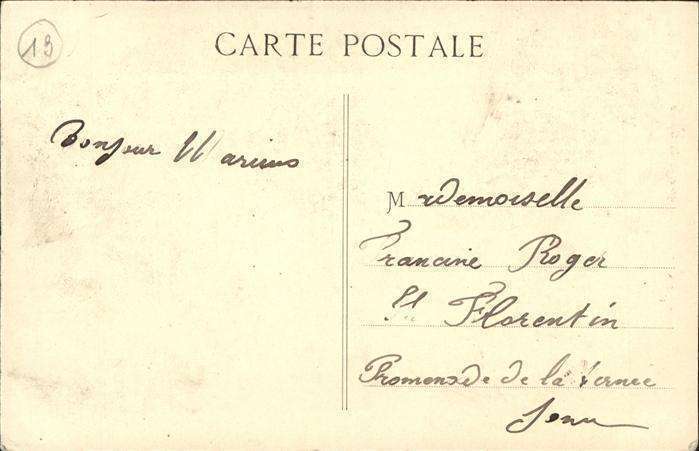 19
CARTE POSTALE
Bonjour Marius
Mademoiselle
Francine Roger
St Florentin
Promenade de la